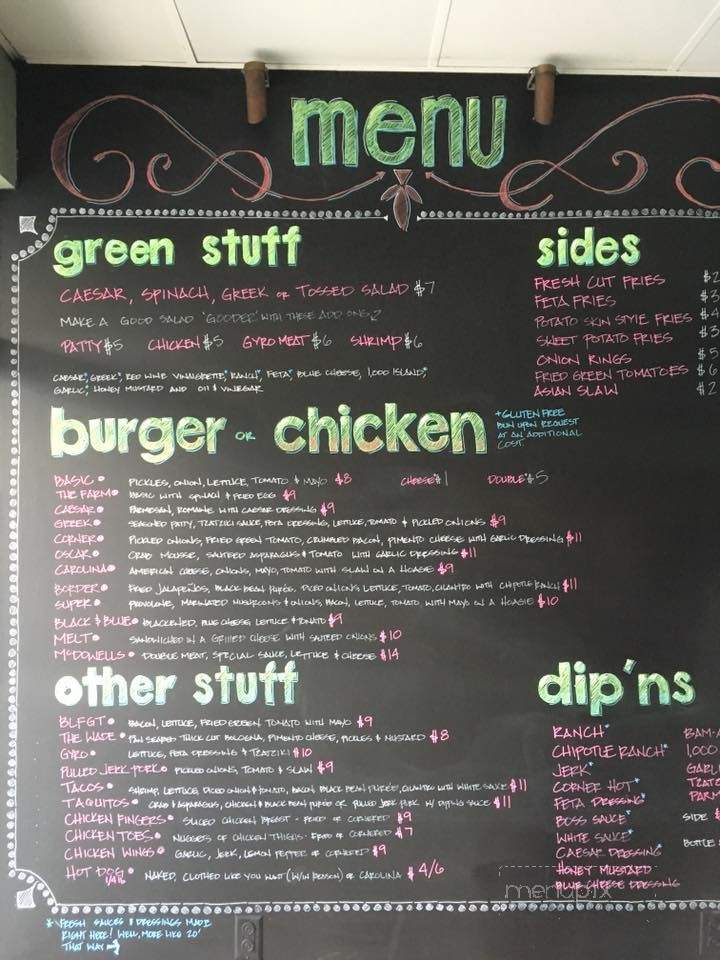 menu
green stuff
CAESAR, SPINACH, GREEK or TOSSED SALAD $7
MAKE A GOOD SALAD 'GOODER' WITH THESE ADD ONS
PATTY $5 CHICKEN $5 GYRO MEAT $6 SHRIMP $6
CAESAR*, GREEK*, RED WINE VINAIGRETTE*, RANCH*, FETA*, BLUE CHEESE, 1,000 ISLAND*,
GARLIC*, HONEY MUSTARD AND OIL & VINEGAR
sides
FRESH CUT FRIES $2
FETA FRIES $3
POTATO SKIN STYLE FRIES $4
SWEET POTATO FRIES $3
ONION RINGS $5
FRIED GREEN TOMATOES $6
ASIAN SLAW $2
burger or chicken
* GLUTEN FREE
BUN UPON REQUEST
AT AN ADDITIONAL
COST.
BASIC • PICKLES, ONION, LETTUCE, TOMATO & MAYO $8 CHEESE $1 DOUBLE $5
THE FARM • BASIC WITH SPINACH & FRIED EGG $9
CAESAR • PARMESAN, ROMAINE WITH CAESAR DRESSING $9
GREEK • SEASONED PATTY, TZATZIKI SAUCE, FETA DRESSING, LETTUCE, TOMATO & PICKLED ONIONS $9
CORNER • PICKLED ONIONS, FRIED GREEN TOMATO, CRUMBLED BACON, PIMENTO CHEESE WITH GARLIC DRESSING $11
OSCAR • CRAB MOUSSE, SAUTEED ASPARAGUS & TOMATO WITH GARLIC DRESSING $11
CAROLINA • AMERICAN CHEESE, ONIONS, MAYO, TOMATO WITH SLAW ON A HOAGIE $9
BORDER • FRIED JALAPEÑOS, BLACK BEAN PURÉE, DICED ONIONS, LETTUCE, TOMATO, CILANTRO WITH CHIPOTLE RANCH $11
SUPER • PROVOLONE, MARINATED MUSHROOMS & ONIONS, BACON, LETTUCE, TOMATO WITH MAYO ON A HOAGIE $10
BLACK & BLUE • BLACKENED, BLUE CHEESE, LETTUCE & TOMATO $9
MELT • SANDWICHED IN A GRILLED CHEESE WITH SAUTEED ONIONS $10
McDOWELLS • DOUBLE MEAT, SPECIAL SAUCE, LETTUCE & CHEESE $14
other stuff
BLFGT • BACON, LETTUCE, FRIED GREEN TOMATO WITH MAYO $9
THE WADE • PAN SEARED THICK CUT BOLOGNA, PIMENTO CHEESE, PICKLES & MUSTARD $8
GYRO • LETTUCE, FETA DRESSING & TZATZIKI $10
PULLED JERK PORK • PICKLED ONIONS, TOMATO & SLAW $9
TACOS • SHRIMP, LETTUCE, DICED ONION & TOMATO, BACON, BLACK BEAN PURÉE, CILANTRO WITH WHITE SAUCE $11
TAQUITOS • CRAB & ASPARAGUS, CHICKEN & BLACK BEAN PURÉE OR PULLED JERK PORK W/ DIPPING SAUCE $11
CHICKEN FINGERS • SLICED CHICKEN BREAST - FRIED OR CORNERED $9
CHICKEN TOES • NUGGETS OF CHICKEN THIGHS - FRIED OR CORNERED $7
CHICKEN WINGS • GARLIC, JERK, LEMON PEPPER OR CORNERED $9
HOT DOG • NAKED, CLOTHED LIKE YOU WANT (W/IN REASON) OR CAROLINA $4/6
1/4 lb
dip'ns
RANCH*
CHIPOTLE RANCH*
JERK*
CORNER HOT*
FETA DRESSING*
BOSS SAUCE*
WHITE SAUCE*
CAESAR DRESSING*
HONEY MUSTARD
BLUE CHEESE DRESSING
BAM-A
1,000
GARLI
TZATZ
PARM
SIDE $
BOTTLE $
menupix
* FRESH SAUCES & DRESSINGS MADE
RIGHT HERE! WELL, MORE LIKE 20'
THAT WAY